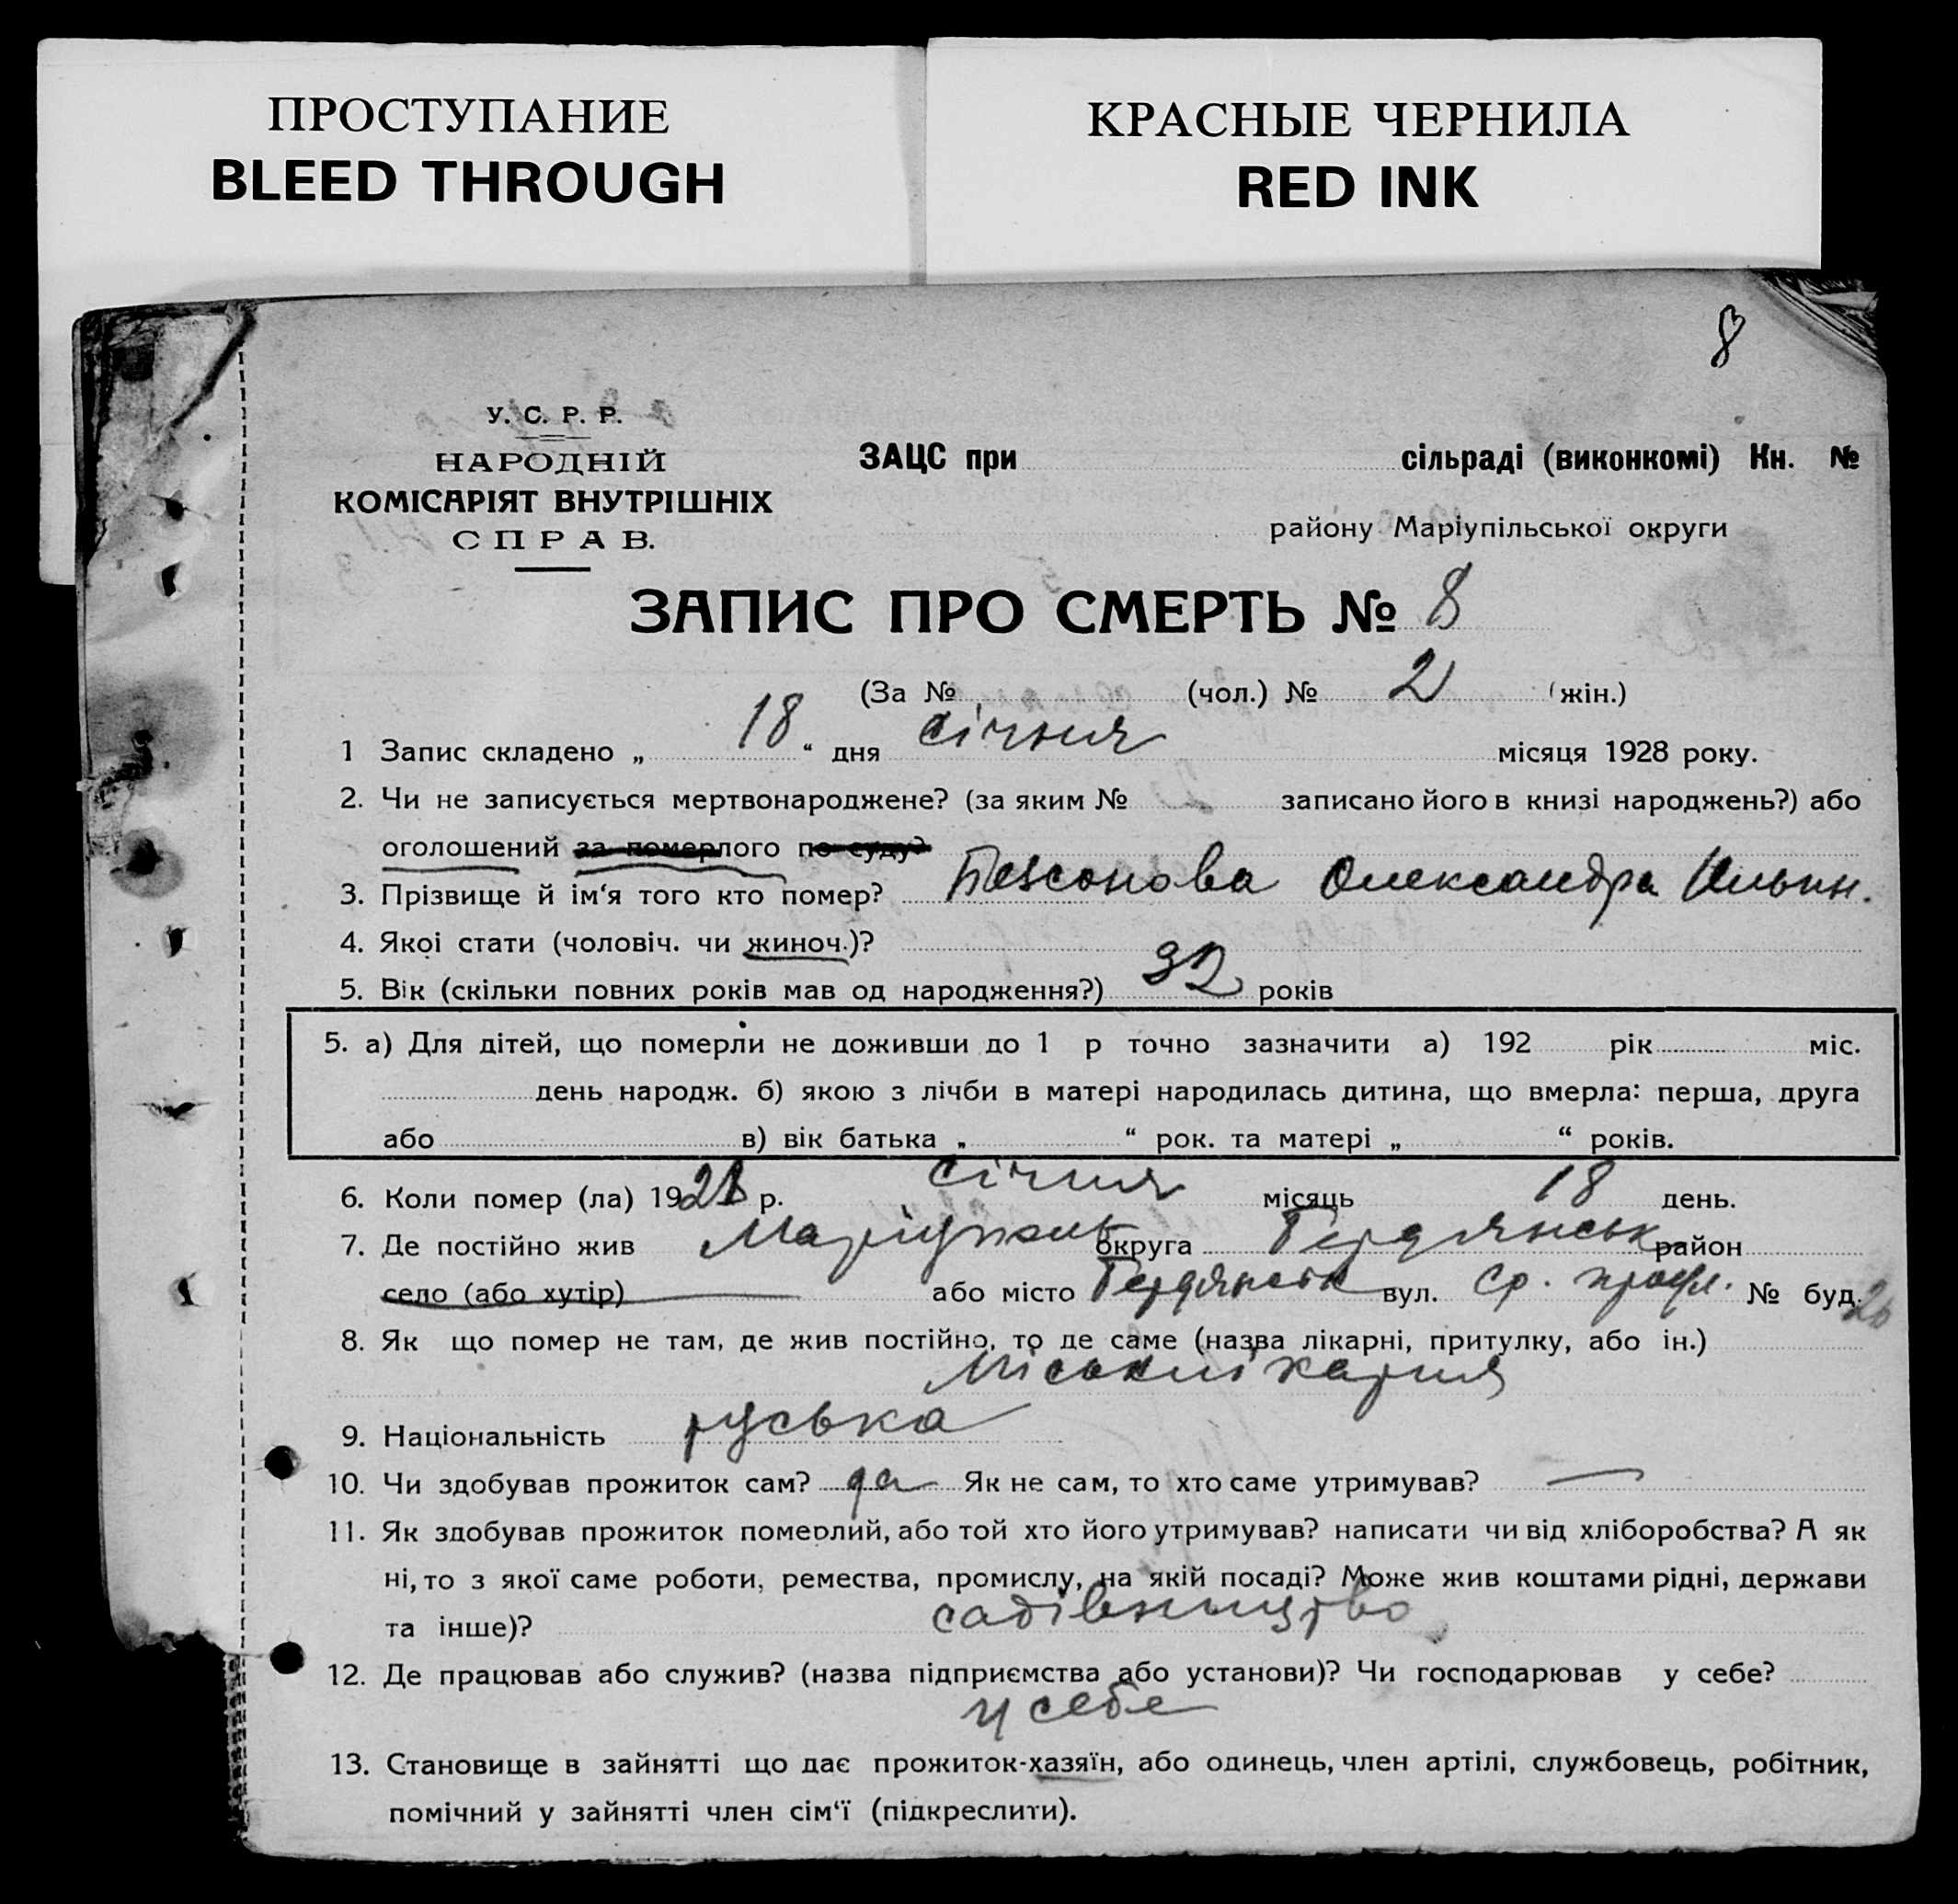 ПРОСТУПАНИЕ
BLEED THROUGH
КРАСНЫЕ ЧЕРНИЛА
RED INK
8
У. С. Р. Р.
НАРОДНІЙ
КОМІСАРІЯТ ВНУТРІШНІХ
СПРАВ.
ЗАЦС при сільраді (виконкомі) Кн. №
району Маріупільської округи
ЗАПИС ПРО СМЕРТЬ № 8
(За № (чол.) № 2 (жін.)
1 Запис складено „ 18 “ дня січня місяця 1928 року.
2. Чи не записується мертвонароджене? (за яким № записано його в книзі народжень?) або
оголошений за померлого по суду?
3. Прізвище й ім‘я того кто помер? Безсонова Олександра Ильин.
4. Якоі стати (чоловіч. чи жиноч.)?
5. Вік (скільки повних років мав од народження?) 32 років
5. а) Для дітей, що померли не доживши до 1 р точно зазначити а) 192 рік міс.
день народж. б) якою з лічби в матері народилась дитина, що вмерла: перша, друга
або в) вік батька „ “ рок. та матері „ “ років.
6. Коли помер (ла) 1928 р. січня місяць 18 день.
7. Де постійно жив Маріуполь округа Бердянськ район
село (або хутір) або місто Бердянськ вул. Ср. № буд. 26
8. Як що помер не там, де жив постійно, то де саме (назва лікарні, притулку, або ін.)
міськлікарня
9. Національність руська
10. Чи здобував прожиток сам? да Як не сам, то хто саме утримував? —
11. Як здобував прожиток померлий, або той хто його утримував? написати чи від хліборобства? А як
ні, то з якої саме роботи, ремества, промислу, на якій посаді? Може жив коштами рідні, держави
та інше)? садівництво
12. Де працював або служив? (назва підприємства або установи)? Чи господарював у себе?
у себе
13. Становище в зайнятті що дає прожиток-хазяїн, або одинець, член артілі, службовець, робітник,
помічний у зайнятті член сім‘ї (підкреслити).